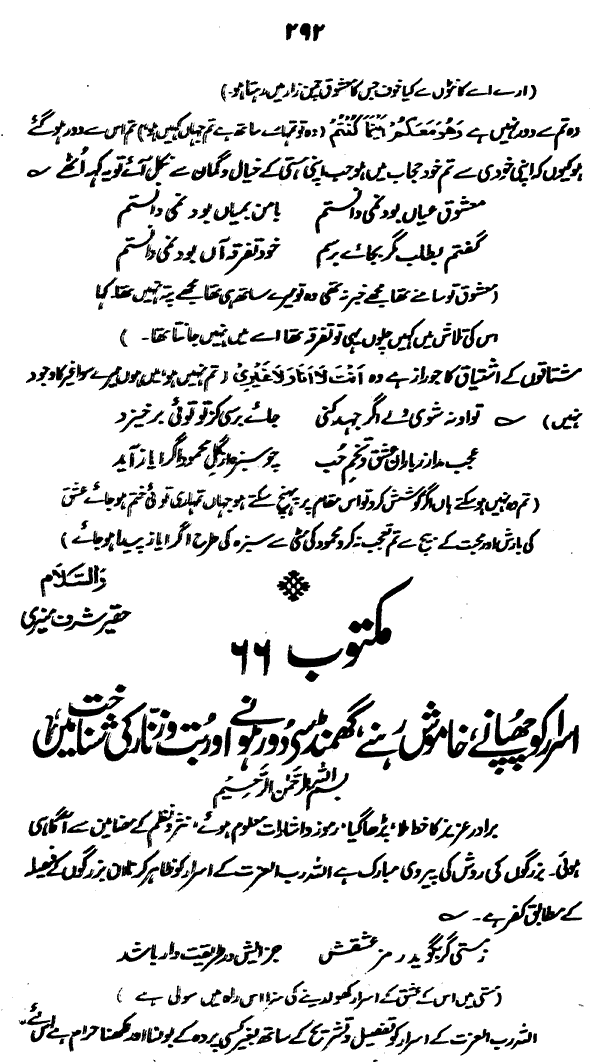 ۲۹۲
(ارے اے کانٹوں سے کیا خوف جس کا معشوق چمن زار میں رہتا ہو۔)
وہ تم سے دور نہیں ہے وَهُوَ مَعَكُمْ اَيْنَمَا كُنْتُمْ (وہ تو تمہارے ساتھ ہے تم جہاں کہیں ہو) تم اس سے دور ہو گئے
ہو کیوں کہ اپنی خودی سے تم خود حجاب میں ہو جب اپنی ہستی کے خیال و گمان سے نکل آئے تو یہ کہہ اُٹھے ؎
معشوق عیاں بود نمی دانستم با من بمیاں بود نمی دانستم
گفتم بطلب گر بجائے برسم خود تفرقہ آں بود نمی دانستم
(معشوق تو سامنے تھا مجھے خبر نہ تھی وہ تو میرے ساتھ ہی تھا مجھے پتہ نہیں تھا کہا
اس کی تلاش میں کہیں چلوں یہی تو تفرقہ تھا اے میں نہیں جانتا تھا۔ )
مشتاقوں کے اشتیاق کا جو راز ہے وہ اَنْتَ لَا اَنَا وَلَا غَيْرِیْ (تم نہیں ہو میں ہوں میرے سوا غیر کا وجود
نہیں) ؎ تو او نہ شوی ولے اگر جہد کنی جائے برسی کز تو توئی برخیزد
عجب مدار ز باران عشق و تخم حب چو سبزہ از گل محمود اگر ایاز آید
(تم وہ نہیں ہو سکتے ہاں اگر کوشش کرو تو اس مقام پر پہنچ سکتے ہو جہاں تمہاری توئی ختم ہو جائے عشق
کی بارش اور محبت کے بیج سے تم تعجب نہ کرو محمود کی مٹی سے سبزہ کی طرح اگر ایاز پیدا ہو جائے)
والسّلام
حقیر شرف منیری
مکتوب ۶۶
اسرار کو چھپانے، خاموش رہنے، گھمنڈ سے دور ہونے اور بُت و زنّار کی شناخت میں
بسم اللہ الرّحمٰن الرّحیم
برادر عزیز کا خط ملا، پڑھا گیا، رموز و اشارات معلوم ہوئے، نثر و نظم کے مضامین سے آگاہی
ہوئی۔ بزرگوں کی روش کی پیروی مبارک ہے اللہ رب العزت کے اسرار کو ظاہر کرنا ان بزرگوں کے فیصلہ
کے مطابق کفر ہے۔ ؎
ز مستی گر بگوید رمز عشقش جزایش در طریقت دار باشد
(مستی میں اس کے عشق کے اسرار کھول دینے کی سزا اس راہ میں سولی ہے )
اللہ رب العزت کے اسرار کو تفصیل و تشریح کے ساتھ بغیر کسی پردہ کے بولنا اور لکھنا حرام ہے اس لئے